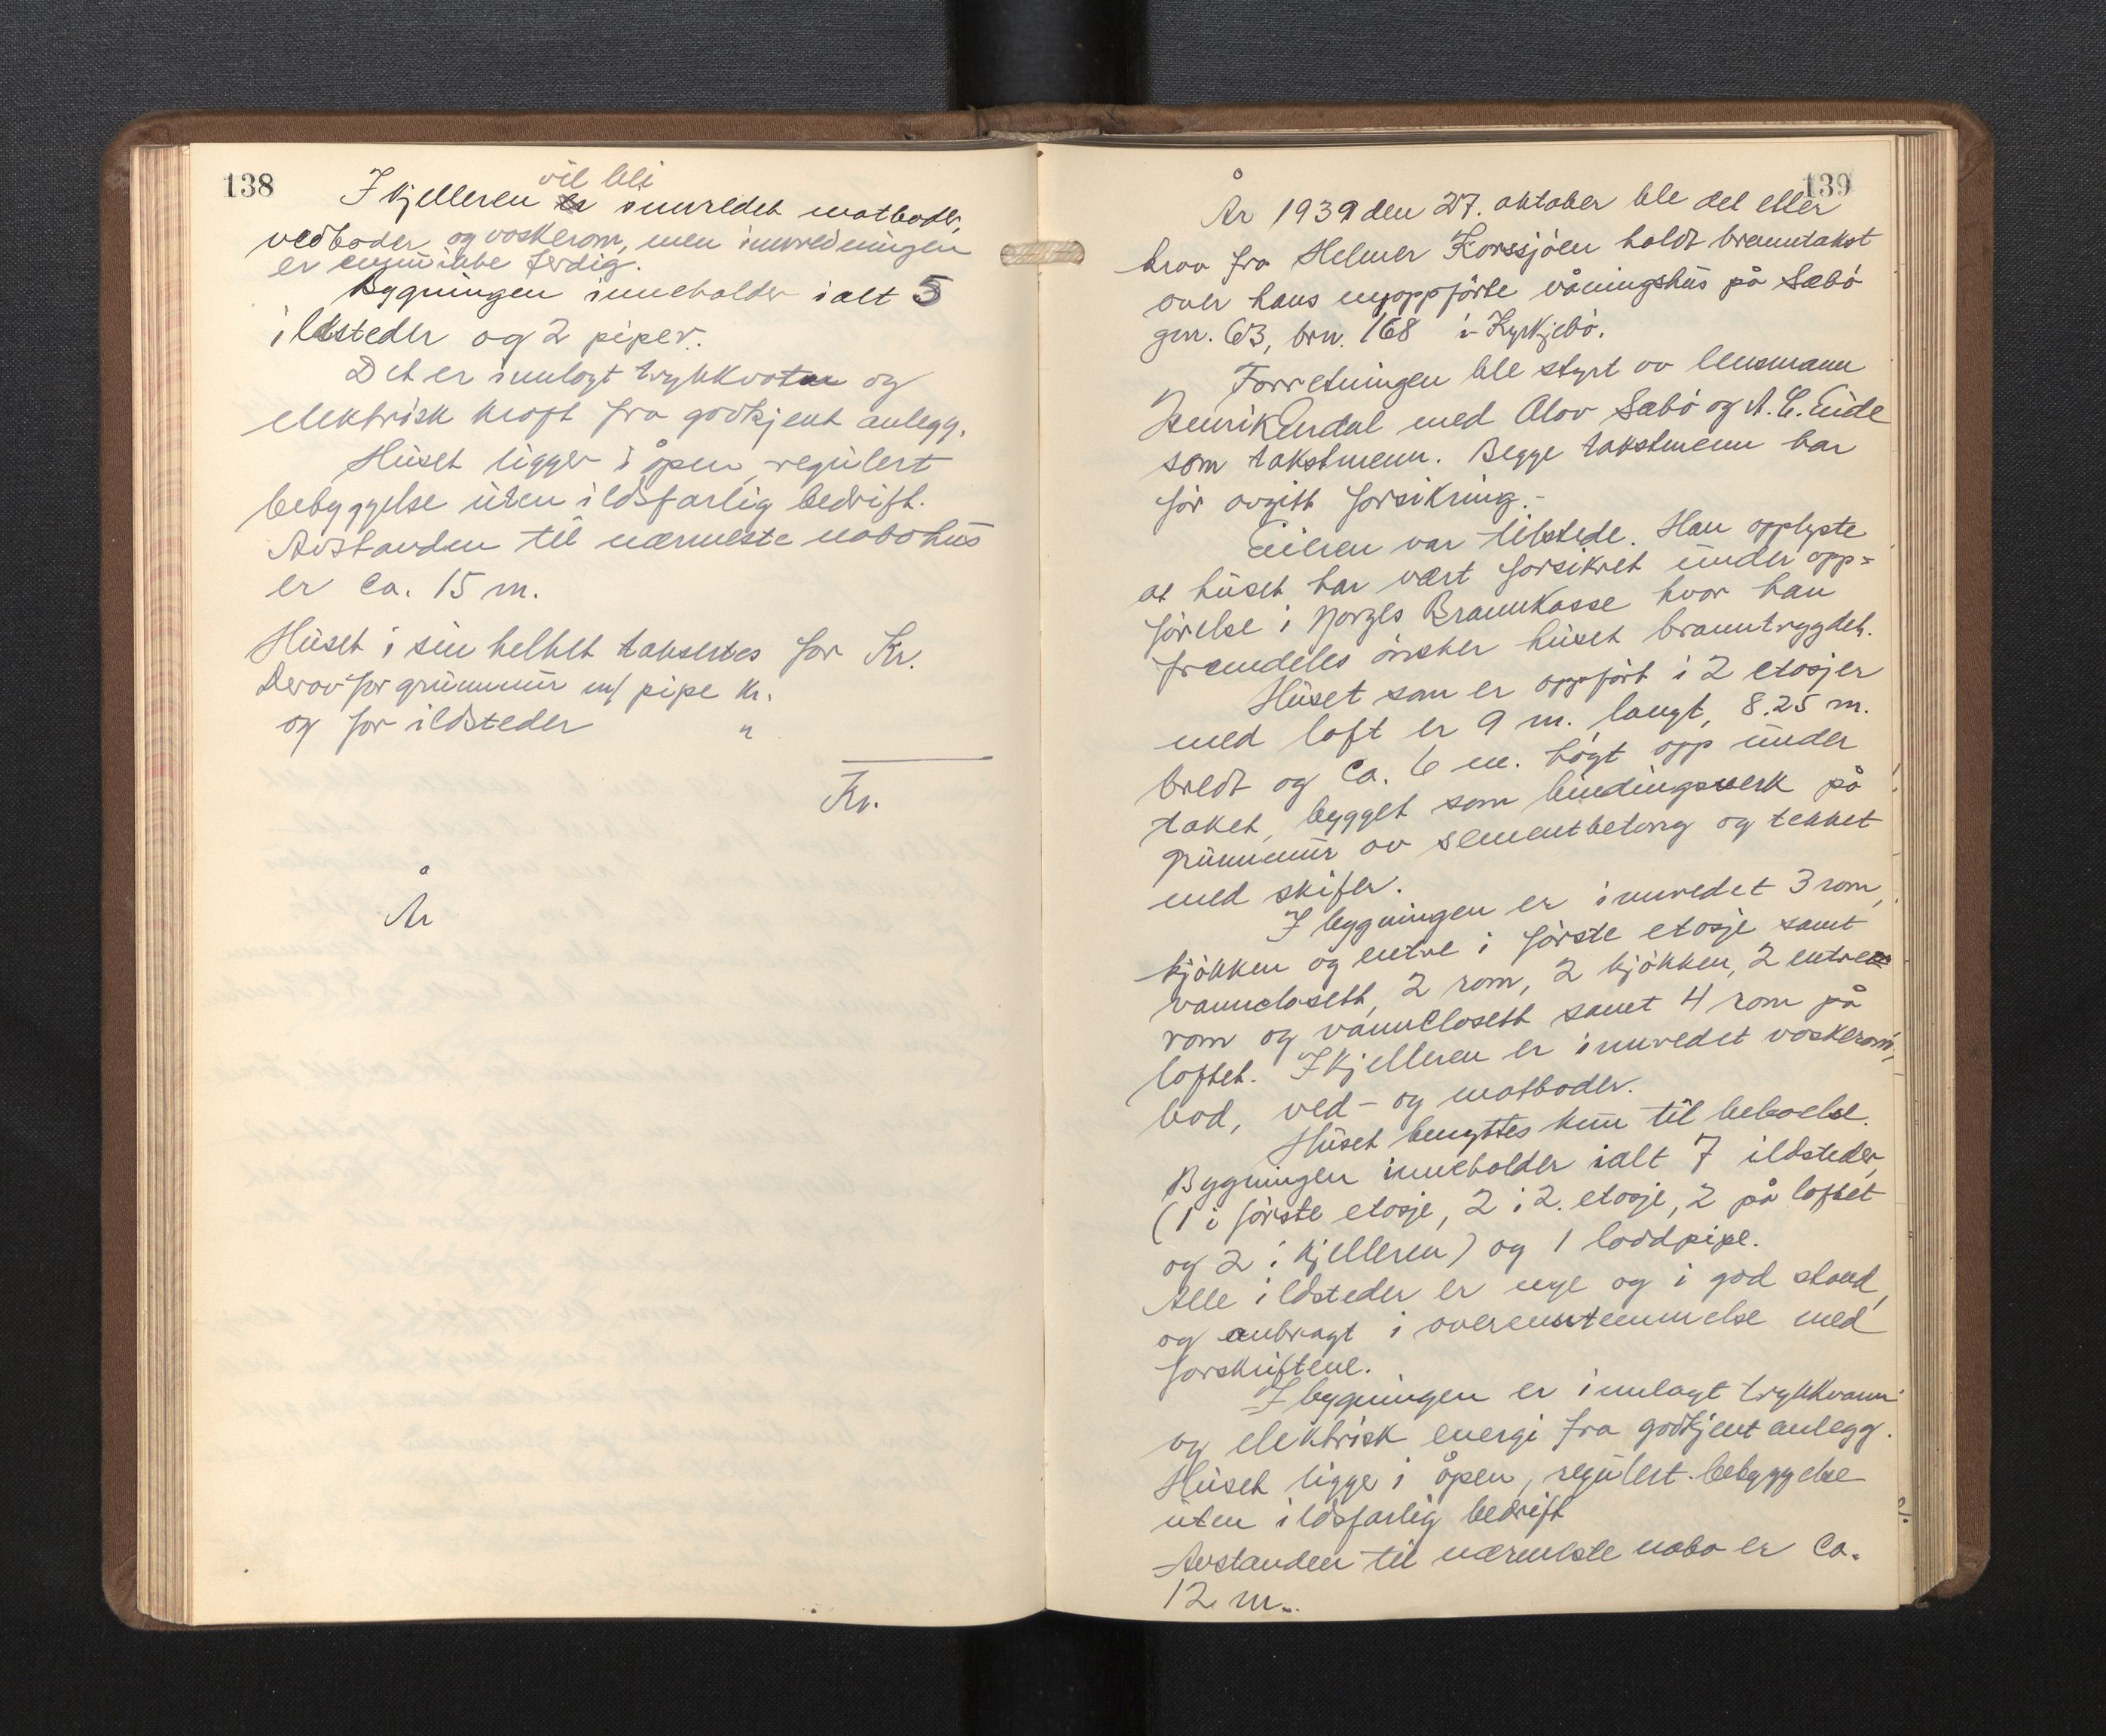 138
vil bli
I kjelleren er innredet matboder,
vedboder og vaskerom, men innredningen
er ennu ikke ferdig.
Bygningen inneholder ialt 5
ildsteder og 2 piper.
Det er innlagt trykkvatn og
elektrisk kraft fra godkjent anlegg.
Huset ligger i åpen, regulert
bebyggelse uten ildsfarlig bedrift.
Avstanden til nærmeste nabohus
er ca. 15 m.
Huset i sin helhet taksertes for Kr.
Derav for grunnmur m/ pipe Kr.
og for ildsteder "
Kr.
År
139
År 1939 den 27. oktober ble det etter
krav fra Helmer Korssjöen holdt branntakst
over hans nyoppförte våningshus på Sæbö
gnr. 63, brn. 168 i Kyrkjebö.
Forretningen ble styrt av lensmann
Henrik Erdal med Olav Sæbö og A. C. Eide
som takstmenn. Begge takstmenn har
för avgitt forsikring.-
Eieren var tilstede. Han opplyste
at huset har vært forsikret under opp=
förelse i Norges Brannkasse hvor han
fremdeles önsker huset branntrygdet.
Huset som er oppfört i 2 etasjer
med loft er 9 m. langt, 8.25 m.
bredt og ca. 6 m. högt opp under
taket, bygget som bindingsverk på
grunnmur av sementbetong og tekket
med skifer.
I bygningen er innredet 3 rom,
kjökken og entre i förste etasje samt
vanncloset, 2 rom, 2 kjökken, 2 entre
rom og vanncloset samt 4 rom på
loftet. I kjelleren er innredet vaskerom,
bod, ved- og matboder.
Huset benyttes kun til beboelse.
Bygningen inneholder ialt 7 ildsteder
(1 i förste etasje, 2 i 2. etasje, 2 på loftet
og 2 i kjelleren) og 1 loddpipe.
Alle ildsteder er nye og i god stand,
og anbragt i overensstemmelse med
forskriftene.
I bygningen er innlagt trykkvann
og elektrisk energi fra godkjent anlegg.
Huset ligge i åpen, regulert bebyggelse
uten ildsfarlig bedrift
Avstanden til nærmeste nabo er ca.
12 m.